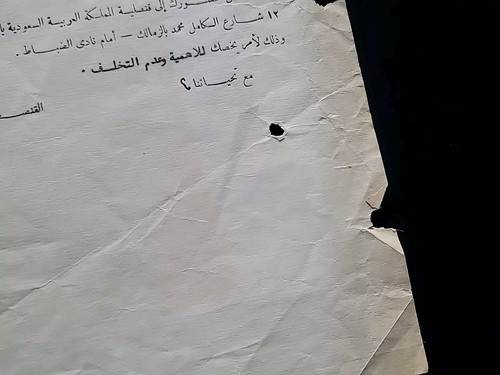 إلى قنصلية المملكة العربية السعودية
١٢ شارع الكامل محمد بالزمالك — أمام نادى الضباط .
وذلك لأمر يخصك للاهمية وعدم التخلف .
مع تحياتنا ؟